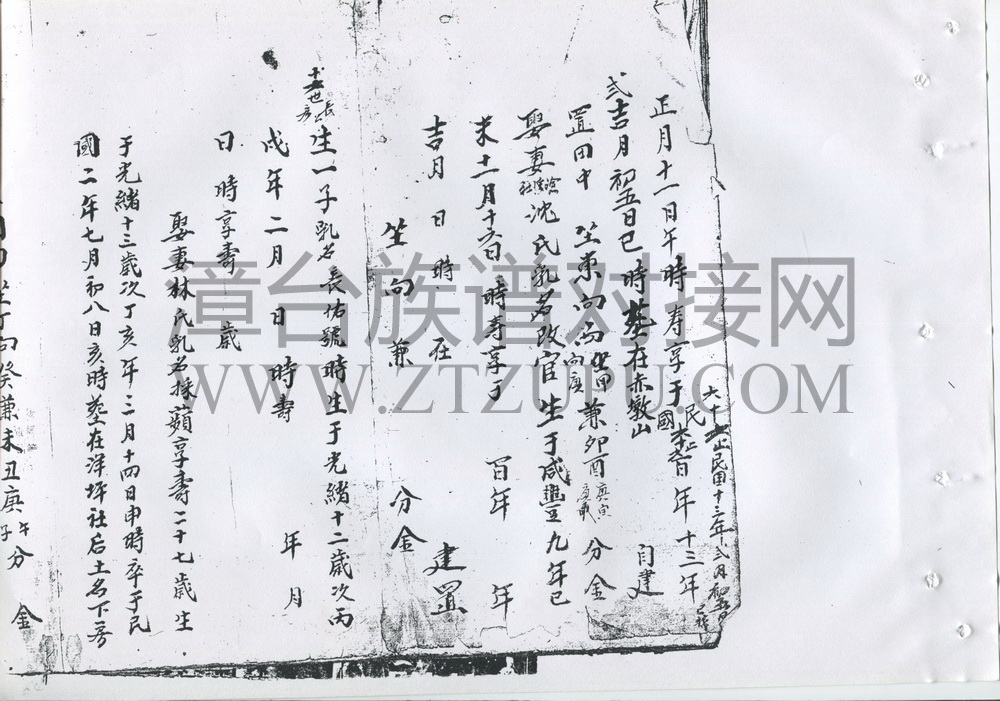 大十 止民國十三年弍月初五日
正月十一日午時 寿享于民國 百年十三年
弍吉月初五日巳時塟在赤墩山 自建
置田中 坐東向西坐甲向庚兼卯酉庚寅 分金
娶妻 社沈氏乳名改官生于咸豊九年己
未十一月十六日 時寿享于 百年 年
吉月 日 時 在 建置
坐向兼 分金
十 世長房 生一子乳名長佑號時生于光緒十二歲次丙
戌年二月 日 時壽 年 月
日 時享壽 歲
娶妻林氏乳名採蘋享壽二十七歲生
于光緒十三歲次丁亥年三月十四日申時卒于民
國二年七月初八日亥時塟在洋坪社后土名下房
坐丁向癸兼未丑庚子午分金
漳台族谱对接网
WWW.ZTZUPU.COM